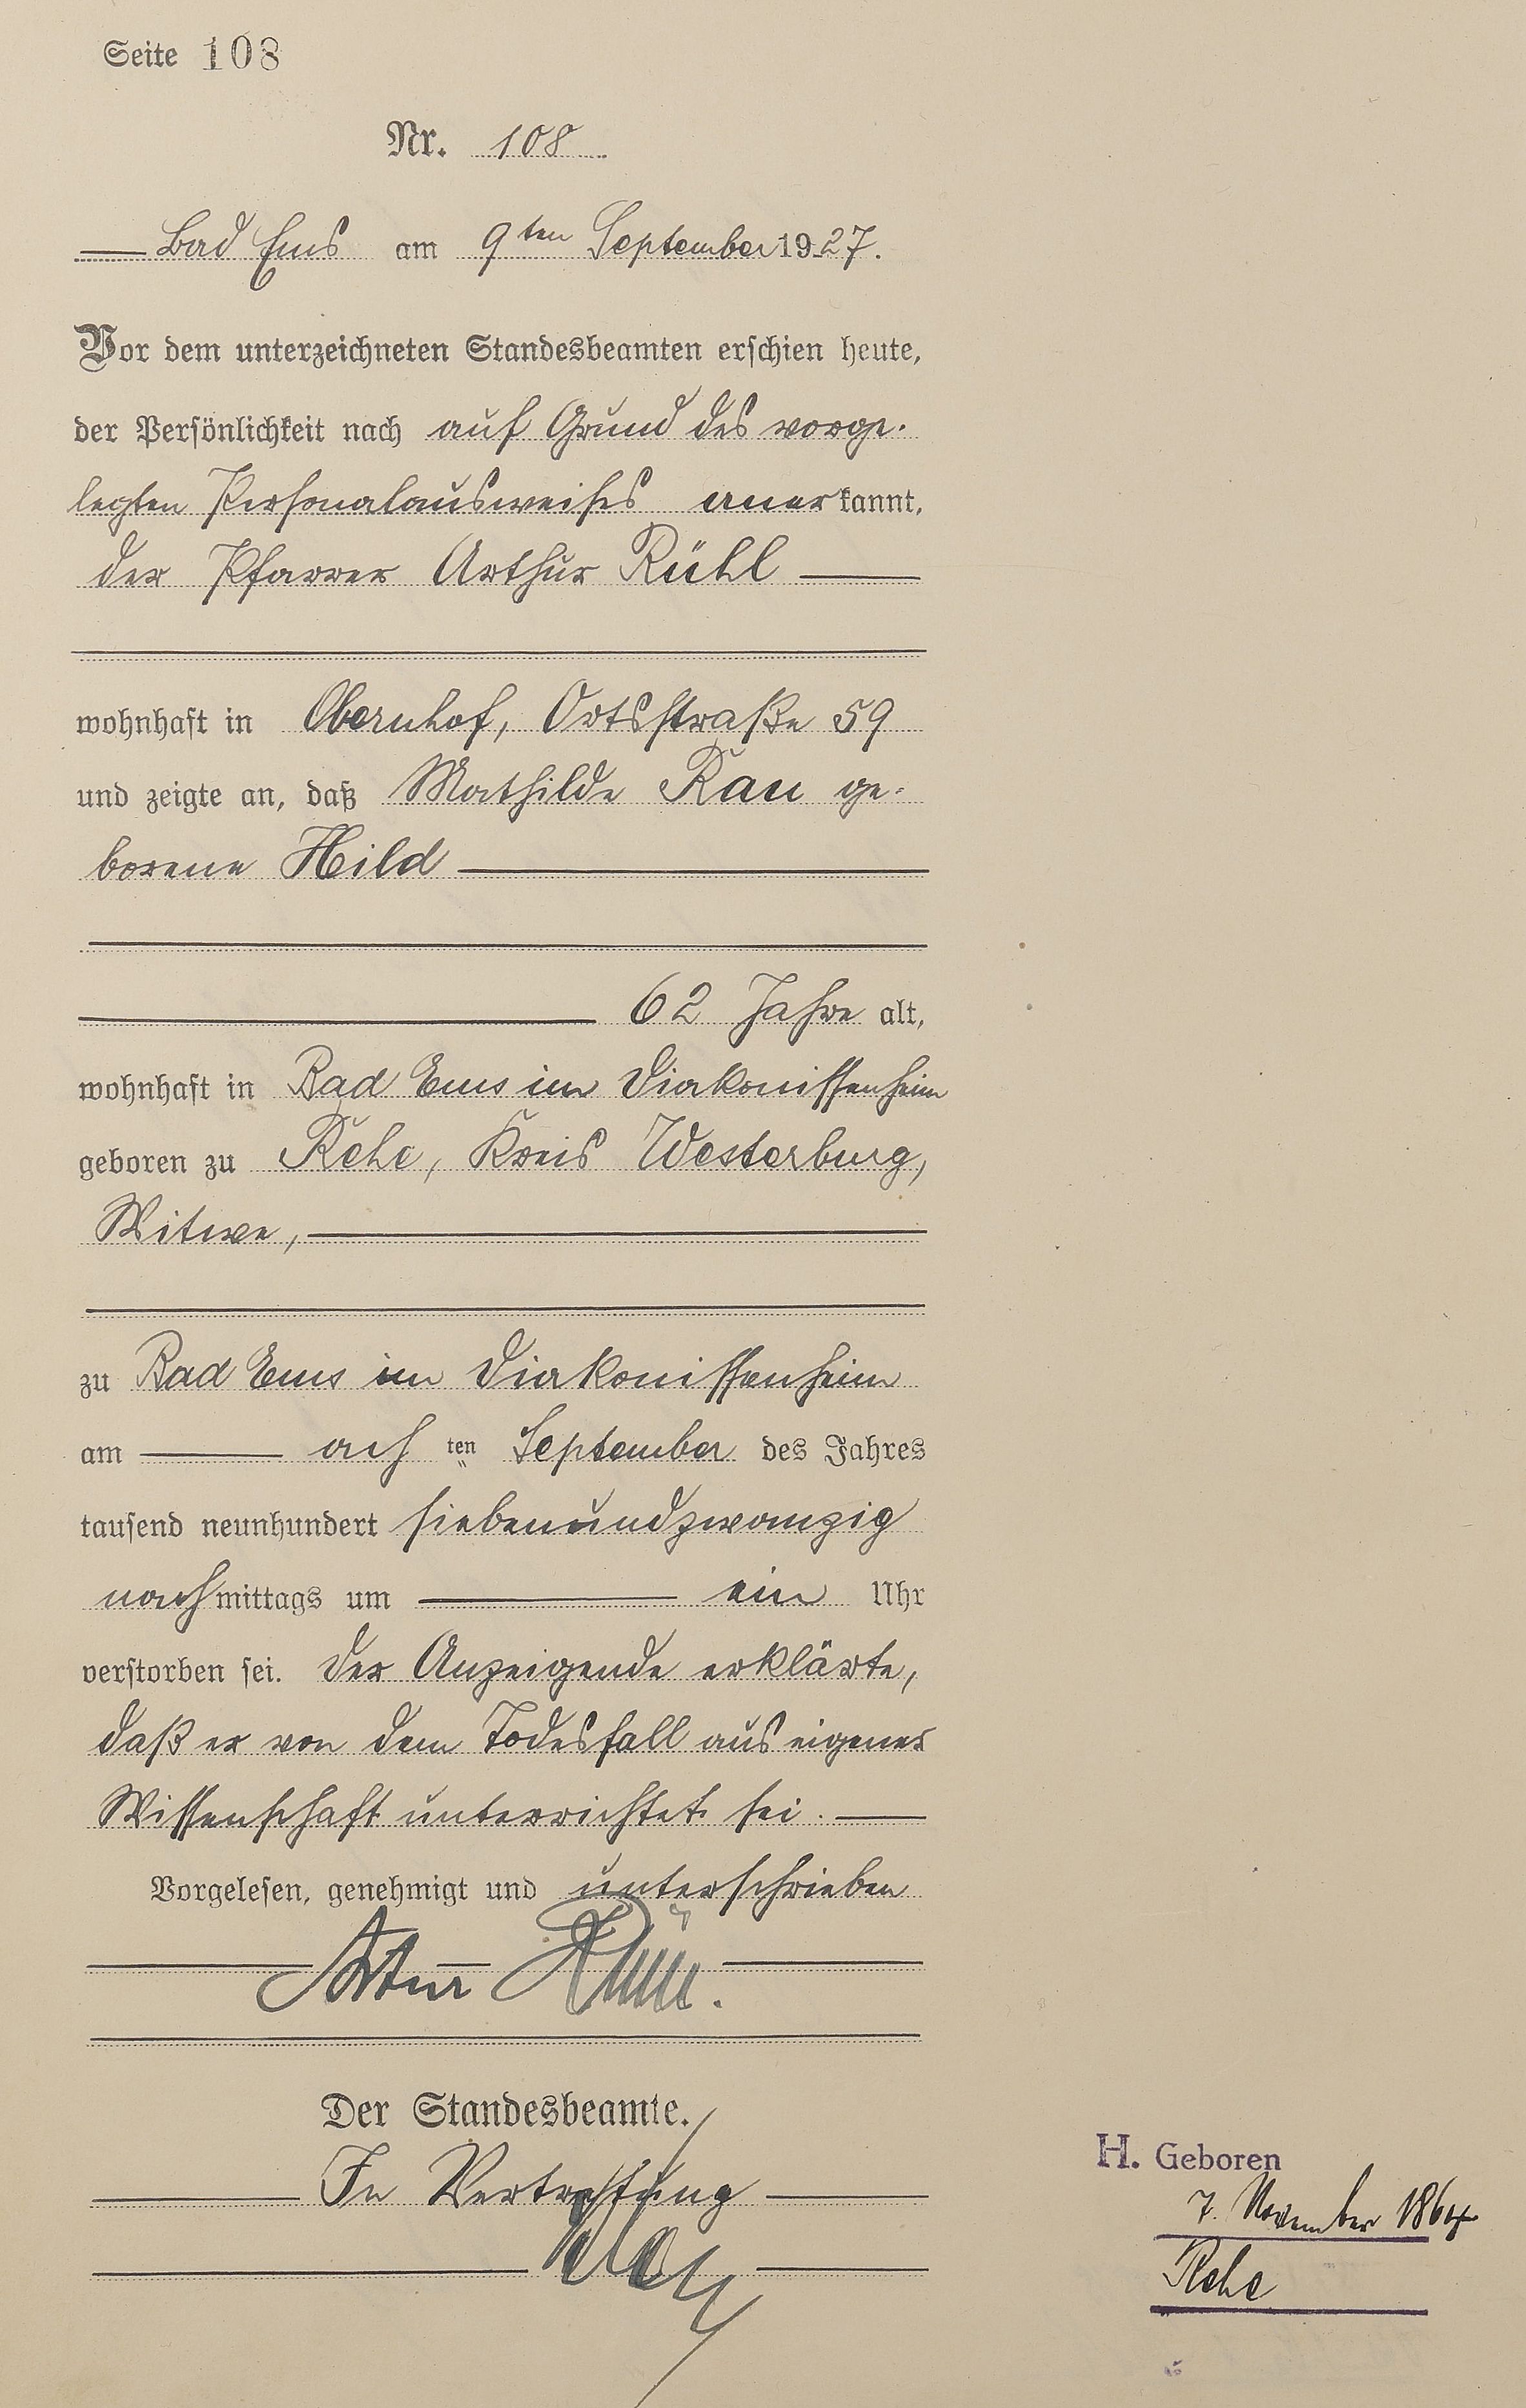 Seite 108
Nr. 108
Bad Ems am 9ten September 1927.
Vor dem unterzeichneten Standesbeamten erschien heute,
der Persönlichkeit nach auf Grund des vorge-
legten Personalausweises anerkannt,
der Pfarrer Arthur Rühl
wohnhaft in Obernhof, Ortsstraße 59
und zeigte an, daß Mathilde Rau ge-
borene Hild
62 Jahre alt,
wohnhaft in Bad Ems im Diakonissenheim
geboren zu Rehe, Kreis Westerburg,
Witwe,
zu Bad Ems im Diakonissenheim
am achten September des Jahres
tausend neunhundert siebenundzwanzig
nachmittags um ein Uhr
verstorben sei. Der Anzeigende erklärte,
daß er von dem Todesfall aus eigener
Wissenschaft unterrichtet sei.
Vorgelesen, genehmigt und unterschrieben
Artur Rühl.
Der Standesbeamte.
In Vertretung
H. Geboren
7. November 1864
Rehe